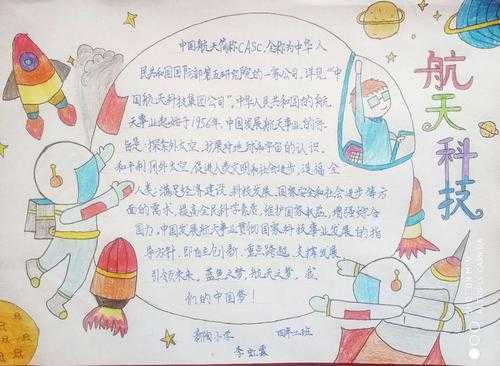 航天科技
中国航天简称CASC,全称为中华人
民共和国国防部第五研究院的一家公司,详见“中
国航天科技集团公司”,中华人民共和国的航
天事业起始于1956年。中国发展航天事业的宗
旨是:探索外太空,扩展对地球和宇宙的认识。
和平利用外太空,促进人类文明和社会进步,造福全
人类;满足经济建设、科技发展、国家安全和社会进步等方
面的需求,提高全民科学素质,维护国家权益,增强综合
国力,中国发展航天事业贯彻国家科技事业发展的指
导方针,即自主创新、重点跨越、支撑发展、
引领未来。蓝色之梦,航天之梦,我
们的中国梦!
小学 四年二班
李